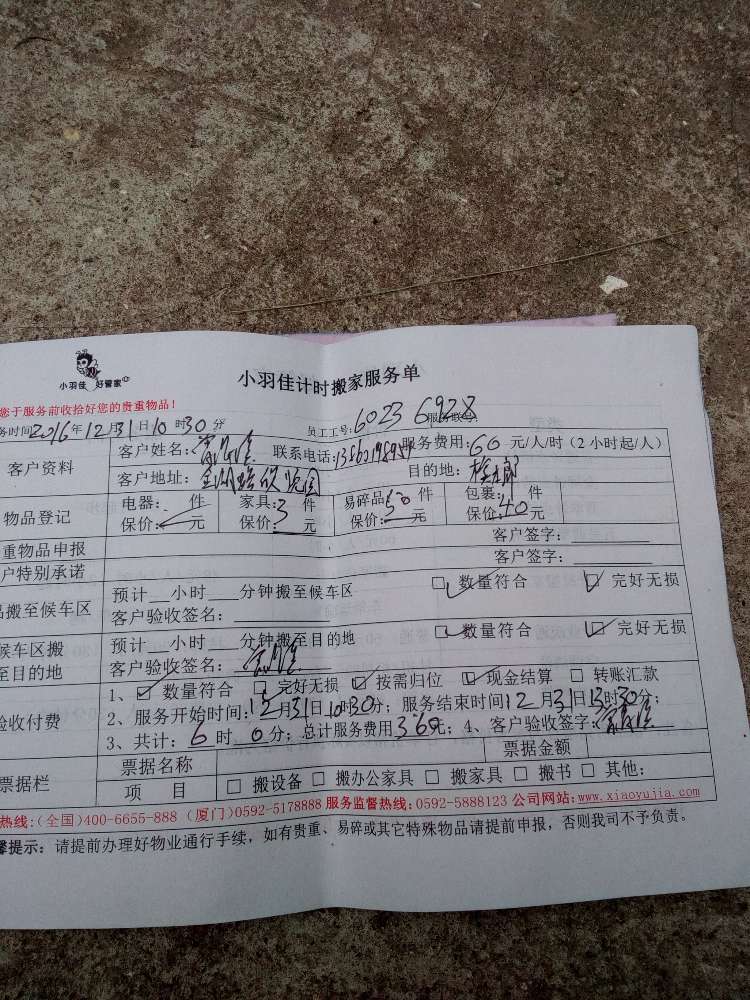 小羽佳 好管家
小羽佳计时搬家服务单
您于服务前收拾好您的贵重物品!
务时间2016年12月31日10时30分 员工工号: 6023 6928 服务联号:
客户资料
客户姓名: 联系电话: 服务费用: 60 元/人/时(2小时起/人)
客户地址: 目的地:
物品登记
电器: 件 家具: 3 件 易碎品 件 包裹: 件
保价: 元 保价: 元 保价: 元 保价: 40 元
重物品申报 客户签字:
户特别承诺 客户签字:
品搬至候车区
预计__小时___分钟搬至候车区 □ 数量符合 □ 完好无损
客户验收签名:
候车区搬至目的地
预计__小时___分钟搬至目的地 □ 数量符合 □ 完好无损
客户验收签名:
验收付费
1、□ 数量符合 □ 完好无损 □ 按需归位 □ 现金结算 □ 转账汇款
2、服务开始时间: 12月31日10时30分; 服务结束时间12月31日13时30分;
3、共计: 6 时 0 分; 总计服务费用 360元; 4、客户验收签字:
票据栏
票据名称 票据金额
项 目 □ 搬设备 □ 搬办公家具 □ 搬家具 □ 搬书 □ 其他:
热线:(全国)400-6655-888 (厦门)0592-5178888 服务监督热线:0592-5888123 公司网站:www.xiaoyujia.com
馨提示: 请提前办理好物业通行手续,如有贵重、易碎或其它特殊物品请提前申报,否则我司不予负责。